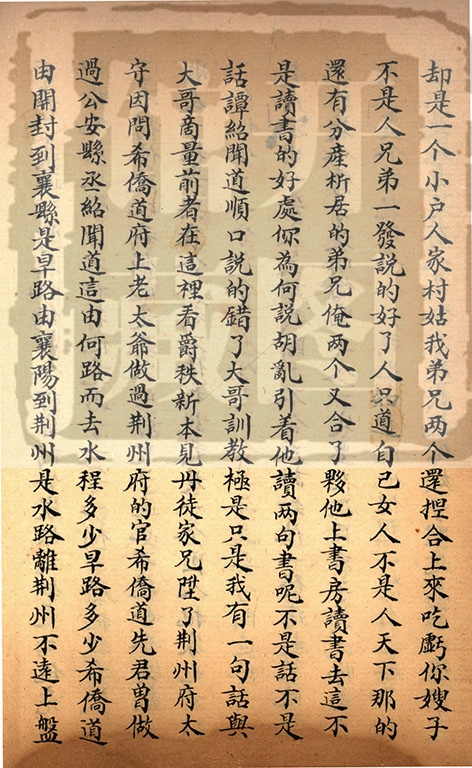 却是一个小户人家村姑我弟兄两个還捏合上來吃虧你嫂子
不是人兄弟一發説的好了人只道自己女人不是人天下那的
還有分產析居的弟兄俺两个又合了夥他上書房讀書去這不
是讀書的好處你為何説胡亂引着他讀两句書呢不是話不是
話譚紹聞道順口説的錯了大哥訓教極是只是我有一句話與
大哥商量前者在這裡看爵秩新本見丹徒家兄陞了荆州府太
守因問希僑道府上老太爺做過荆州府的官希僑道先君曽做
過公安縣丞紹聞道這由何路而去水程多少旱路多少希僑道
由開封到襄縣是旱路由襄陽到荆州是水路離荆州不遠上盤